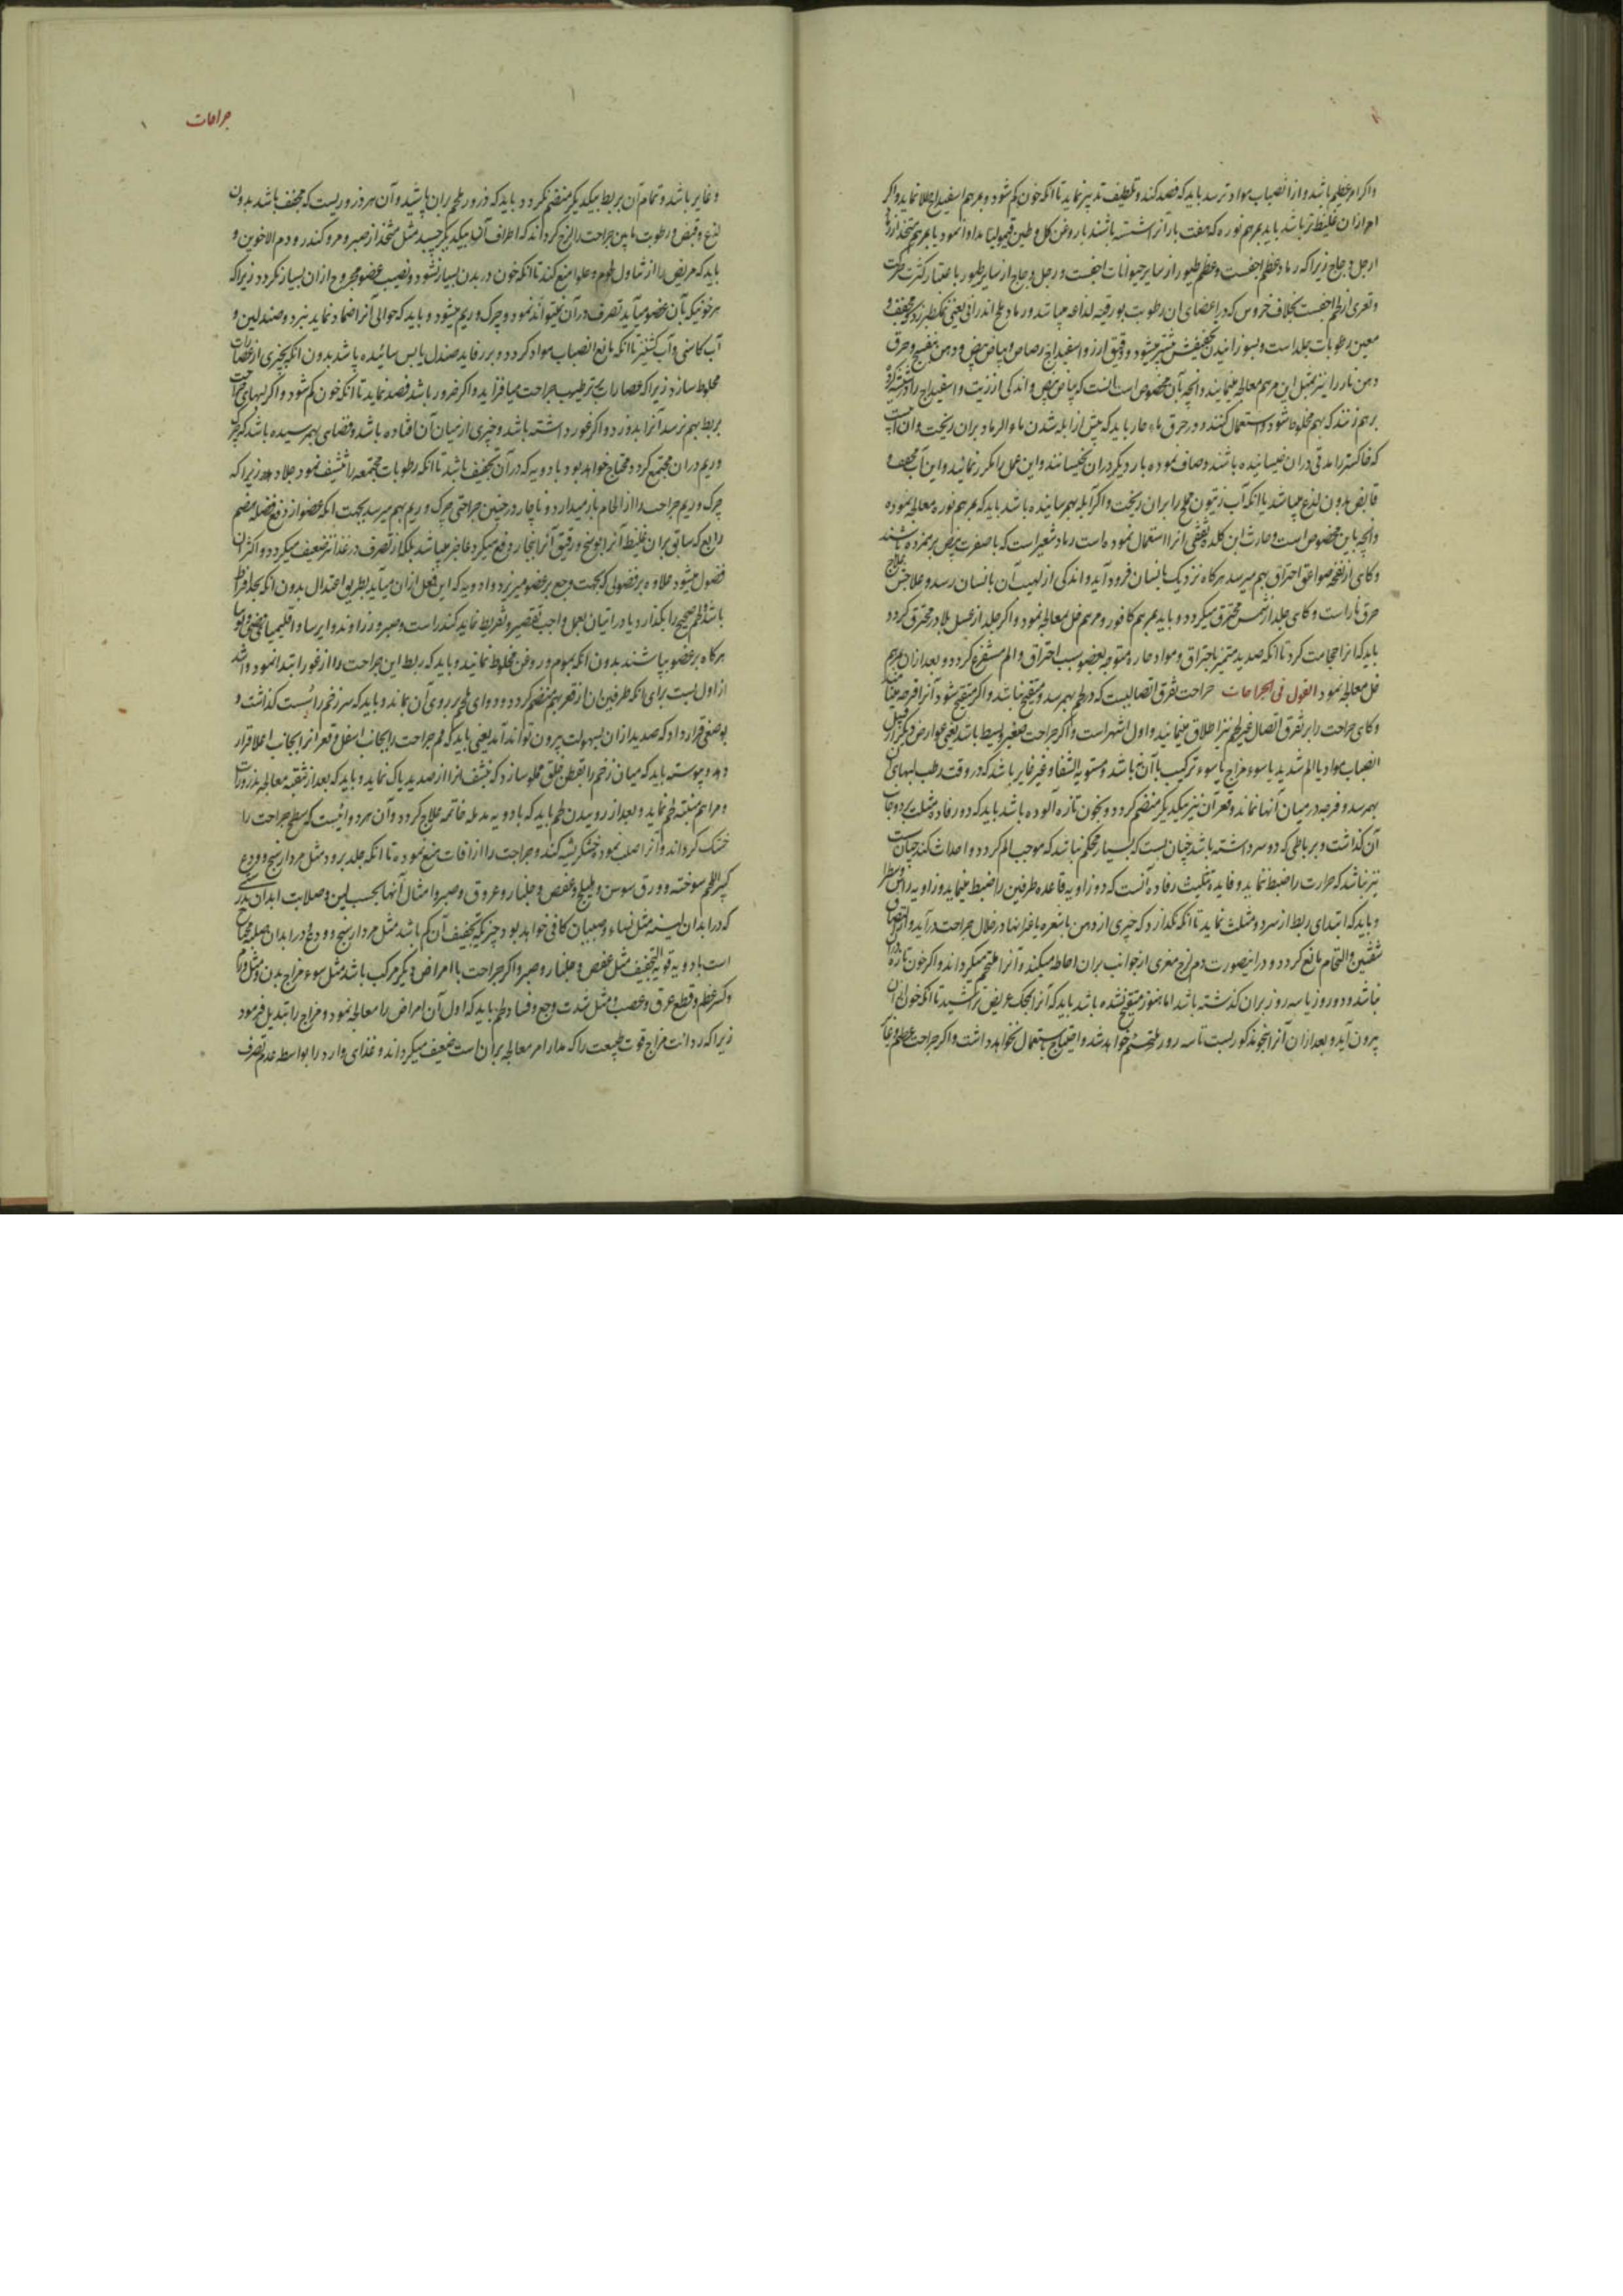 واکر امر عظیم باشد و از انصباب مواد ترسد باید که فصد کنند و تلطیف تدبیر نماید تا انکه خون کم شود و مرهم اسفیداج طلا نماید و اکر
امر ازان غلیظتر باشد باید بمرهم نوره که هفت بار آنرا شسته باشند با روغن کل و طین قیمولیا مداوا نمود یا بمرهم متخذ از رماد
ارجل دجاج زیرا که رماد عظم اجفست و عظم طیور از سایر حیوانات اجفست و رجل دجاج از سایر طیور باعتبار کثرت حرکت
و تعری از لحم اجفست بخلاف خروس که در اعضای ان رطوبت بورقیه لذاعه میباشد و رماد ملح اندرانی یعنی نمک طبرزد
معین رطوبات جلد است و بسوزانیدن تجفیفش بیشتر میشود و دقیق ارز و اسفیداج رصاص و بیاض بیض و دهن بنفسج و حرق
دهن نار را نیز بمثل این مرهم معالجه مینمایند و انچه بآن مخصوص است انست که بیاض بیض و اندکی از زیت و اسفیداج را
برهم زنند که بهم مخلوط شود و استعمال کنند و در حرق ماء حار باید که پیش از ابله شدن ماء الرماد بران ریخت و ان آبیست
که خاکستر را مدتی دران خیسانیده باشند و صاف نموده بار دیکر دران بخیسانند و این عمل را مکرر نمائید و این آب مجفف و
قابض بدون لذع میباشد یا انکه آب زیتون مملح را بران ریخت و اکر آبله بهم رسانیده باشد باید که بمرهم نوره معالجه نموده
وانچه باین مخصوص است و حارث ابن کلده ثقفی انرا استعمال نموده است رماد شعیر است که با صفرت بیض برهم زده باشند
و کاهی از نفخه صواعق احتراق بهم میرسد هرکاه نزدیک بانسان فرود آید و اندکی از لهیب آن بانسان رسد و علاجش علاج
حرق نار است و کاهی جلد از شمس محترق میکردد و باید بمرهم کافور و مرهم خل معالجه نمود و اکر جلد از عسل بلادر محترق کردد
باید که انرا حجامت کرد تا انکه صدید متمیز باحتراق و مواد حاره متوجه بعضو بسبب احتراق و الم مستفرغ کردد و بعد ازان بمرهم
خل معالجه نمود القول فی الجراحات جراحت تفرق اتصالیست که در لحم بهمرسد و متقیح نباشد و اکر متقیح شود آنرا قرحه مینامند
و کاهی جراحت را بر تفرق اتصال غیر لحم نیز اطلاق مینمایند و اول اشهر است و اکر جراحت صغیر و بسیط باشد یعنی عوارض دیکر از قبیل
انصباب مواد یا الم شدید یا سوء مزاج یا سوء ترکیب با آن نباشد و مستویة الشفا و غیر غایر باشد که در وقت ربط لبهای آن
بهمرسد و فرجه در میان آنها نماند و قعر آن نیز بیکدیکر منضم کردد و بخون تازه آلوده باشد باید که دو رفاده مثلث بر دو جانب
آن کذاشت و بر باطی که دو سر داشته باشد چنان بست که بسیار محکم نباشد که موجب الم کردد و احداث کند و چنان سست
نیز نباشد که حرارت را ضبط نماید و فایده تثلیث رفاده آنست که دو زاویه قاعده طرفین را ضبط مینماید و زاویه راس وسط را
و باید که ابتدای ربط از سر دو مثلث نماید تا انکه نکذارد که چیزی از دهن یا شعره یا غیر اینها در خلال جراحت درآید و از التصاق
شفتین و التحام مانع کردد و در اینصورت دم لزج مغری از جوانب بران احاطه میکند و آنرا ملتحم میکرداند و اکر خون تازه دران
نباشد و دو روز یا سه روز بران کذشته باشد اما هنوز متقیح نشده باشد باید که آنرا بحک عریض تر کشید تا انکه خون از آن
بیرون آید و بعد ازان آنرا بنحو مذکور بست تا سه روز ملتحم خواهد شد و احتیاج باستعمال نخواهد داشت و اکر جراحت عظیم
جراحات
و غایر باشد و تمام آن بربط بیکدیکر منضم نکردد باید که ذرور ملحم بران پاشید و آن هر ذروریست که مجفف باشد بدون
لذع و قبض و رطوبت مابین جراحت را لزج کرداند که اطراف آن بیکدیکر چسبد مثل متخذ از صبر و مر و کندر و دم الاخوین و
باید که مریض را از تناول لحوم و حلوا منع کند تا انکه خون در بدن بسیار نشود و نصیب عضو مجروح ازان بسیار نکردد زیرا که
هر خونیکه بآن عضو میآید تصرف درآن نمیتواند نمود و چرک و ریم میشود و باید که حوالی آنرا ضماد نماید بنبرد و صندلین و
آب کاسنی و آب کشنیز تا انکه مانع انصباب مواد کردد و بر رفاید صندل یابس سائیده پاشد بدون انکه بچیزی از عصارات
مخلوط سازد زیرا که عصارات بترطیب جراحت میافزاید و اکر ضرور باشد فصد نماید تا انکه خون کم شود و اکر لبهای جراحت
بربط بهم نرسد آنرا بدوزد و اکر غور داشته باشد و چیزی از میان آن افتاده باشد و فضائی بهمرسیده باشد که چرک
و ریم دران مجتمع کردد محتاج خواهد بود بادویه که در آن تجفیف باشد تا انکه رطوبات مجتمعه را تنشیف نمود جلا دهد زیرا که
چرک و ریم جراحت را از التحام باز میدارد و ناچار در چنین جراحتی چرک و ریم بهم میرسد بجهت انکه عضو از دفع فضله هضم
رابع که سابق بران غلیظ آنرا بوسخ و رقیق آنرا ببخار دفع میکرد عاجز میباشد بلکه از تصرف در غذا نیز ضعیف میکردد و اکثر آن
فضول میشود علاوه بر فضولی که بجهت وجع بر عضو میریزد و ادویه که این فعل ازان میآید بطریق اعتدال بدون انکه بحد افراط
باشد لحم صحیح را بکذارد یا در اتیان بعمل واجب تقصیر و تفریط نماید کندر است و صبر و زراوند و ایرسا و اقلیمیا
هرکاه بر عضو بپاشند بدون انکه بموم و روغن مخلوط نمائید و باید که ربط این جراحت را از غور ابتدا نمود و
از اول بست برای انکه طرفین ان از قعر بهم منضم کردد و دوای ملحم بر روی آن بماند و باید که سر زخم را سست کذاشت و
بوضعی قرار داد که صدید ازان بسهولت بیرون تواند آمد یعنی باید که فم جراحت را بجانب اسفل و قعر انرا بجانب اعلا قرار
دهد و پیوسته باید که میان زخم را بقطن خلق مملو سازد که بنشف انرا از صدید پاک نماید و باید که بعد از تنقیه معالجه بذرورات
و مراهم منبته لحم نماید و بعد از روییدن لحم باید که بادویه مدمله خاتمه علاج کردد و آن هر دوائیست که سطح جراحت را
خشک کرداند و آنرا صلب نموده خشکریشه کند و جراحت را از آفات منع نموده تا انکه جلد بروید مثل مردارسنج و ودع
سوخته و ورق سوسن و هلیلج و عفص و جلنار و عروق و صبر و امثال آنها بحسب لین و صلابت ابدان بدرستی
که در ابدان لینه مثل نساء و صبیان کافی خواهد بود چیزیکه تجفیف آن کم باشد مثل مردارسنج و ودع و در ابدان صلبه محتاج
است بادویه قویه التجفیف مثل عفص و جلنار و صبر و اکر جراحت با امراض دیکر مرکب باشد مثل سوء مزاج بدن و مثل ورم
و کسر عظم و قطع عرق و عصب و مثل شدت وجع و فساد لحم باید که اول آن امراض را معالجه نمود و مزاج را تبدیل فرمود
زیرا که ردائت مزاج قوت طبیعت را که مدار امر معالجه بران است ضعیف میکرداند و غذای وارد را بواسطه عدم تصرف